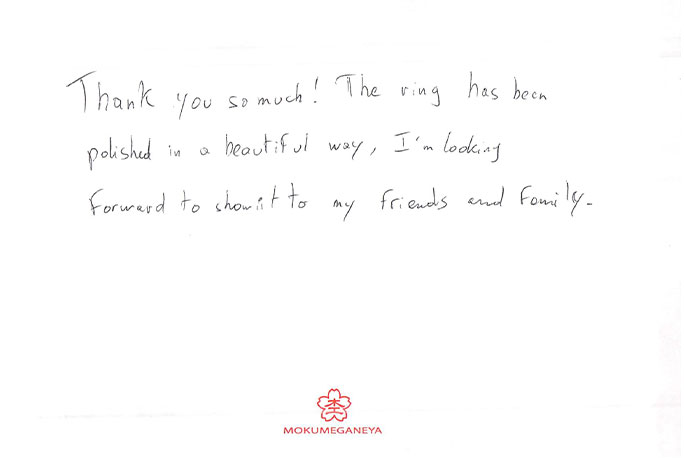 Thank you so much! The ring has been
polished in a beautiful way, I'm looking
forward to show it to my friends and family.
MOKUMEGANEYA